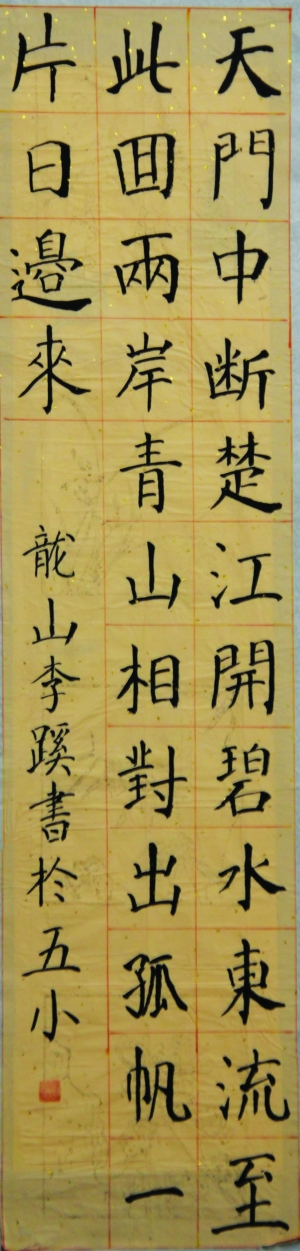 天門中断楚江開碧水東流至
此回兩岸青山相對出孤帆一
片日邊來
龍山李蹊書於五小